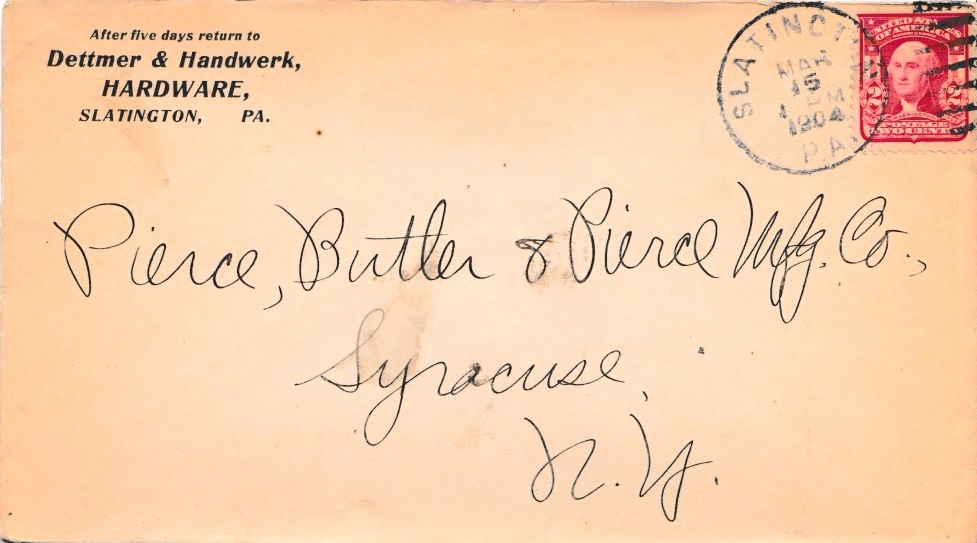 After five days return to
Dettmer & Handwerk,
HARDWARE,
SLATINGTON, PA.
SLATINGT
MAR
15
1904
PA.
UNITED STATES
OF AMERICA
2 2
POSTAGE
TWO CENTS
Pierce, Butler & Pierce Mfg. Co.,
Syracuse,
N.Y.